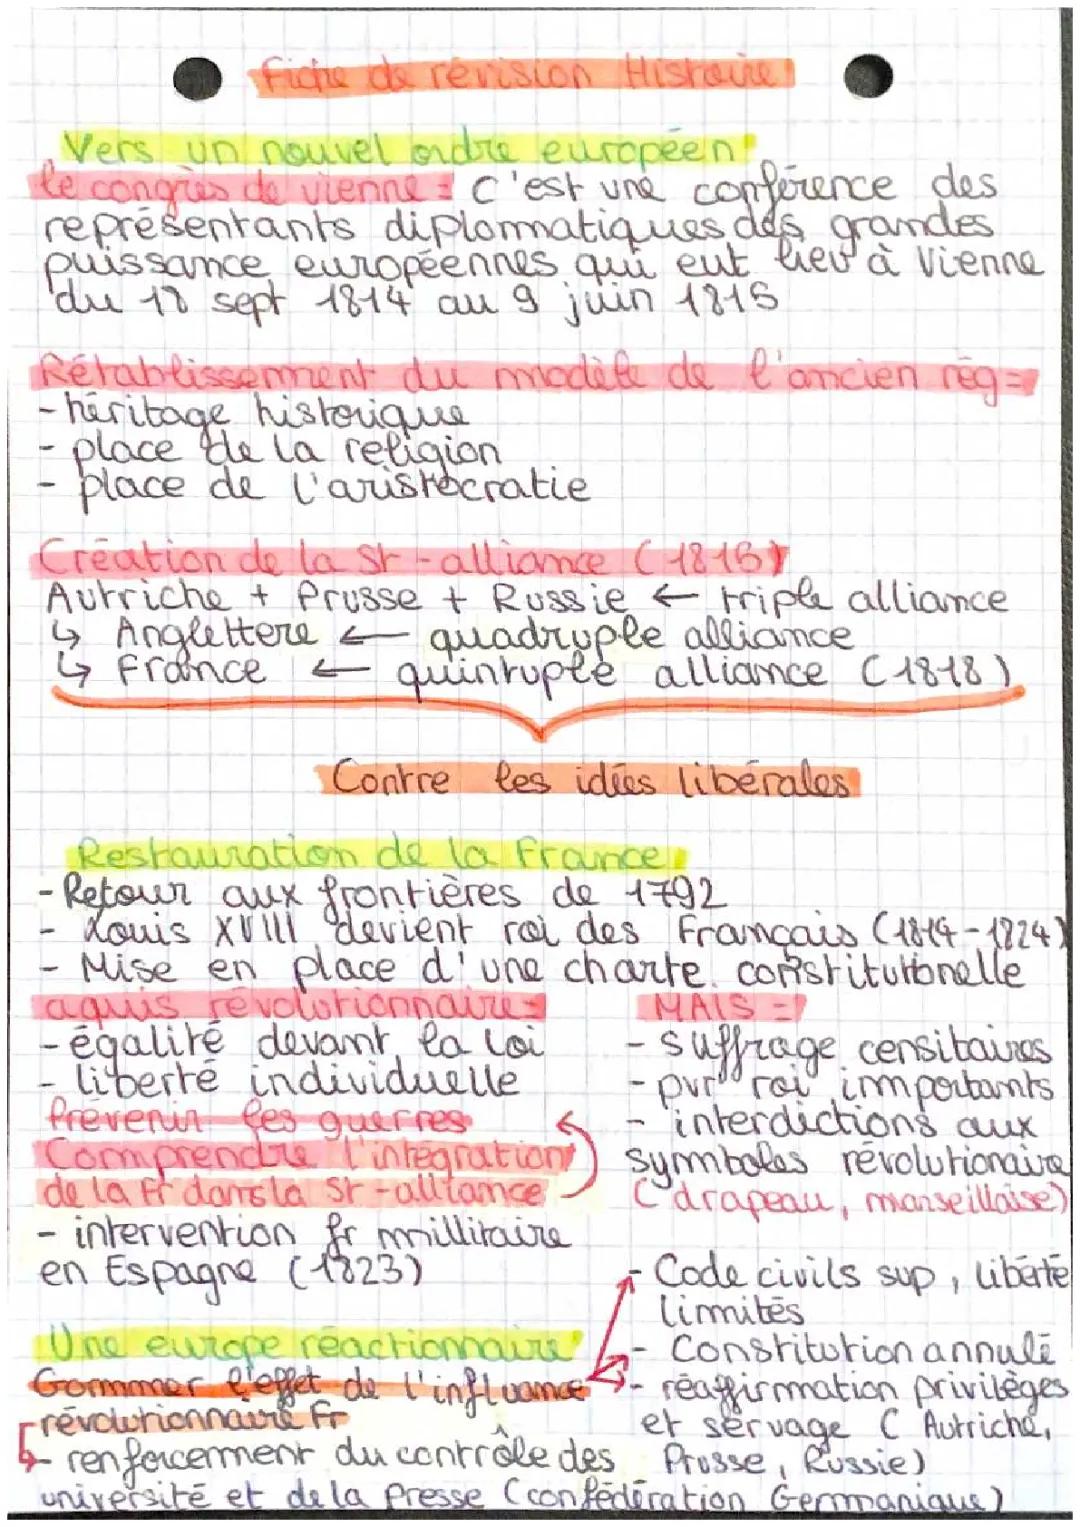 Fiche de révision Histoire
Vers un nouvel ordre européen
le congrès de vienne = C'est une conférence des
représentants diplomatiques des grandes
puissance européennes qui eut lieu à Vienne
du 18 sept 1814 au 9 juin 1815
Rétablissement du modèle de l'ancien rég =
- héritage historique
- place de la religion
- place de l'aristocratie
Création de la St-alliance (1815)
Autriche + Prusse + Russie ← triple alliance
↳ Anglettere ← quadruple alliance
↳ France ← quintuple alliance (1818)
Contre les idées libérales
Restauration de la France
- Retour aux frontières de 1792
- Louis XVIII devient roi des Français (1814-1824)
- Mise en place d'une charte constitutionelle
aquis révolutionnaire =
- égalité devant la loi
- liberté individuelle
Prévenir les guerres
Comprendre l'intégration
de la Fr dans la St-alliance
- intervention fr millitaire
en Espagne (1823)
MAIS =
- suffrage censitaires
- pvr roi importants
- interdictions aux
symboles révolutionaire
(drapeau, marseillaise)
Une europe réactionnaire
Gommer l'effet de l'influence
révolutionnaire Fr
- Code civils sup, libérté
limités
- Constitution annulé
- réaffirmation privilèges
et servage (Autriche,
Prusse, Russie)
↳ - renforcement du contrôle des
université et de la presse (confédération Germanique)